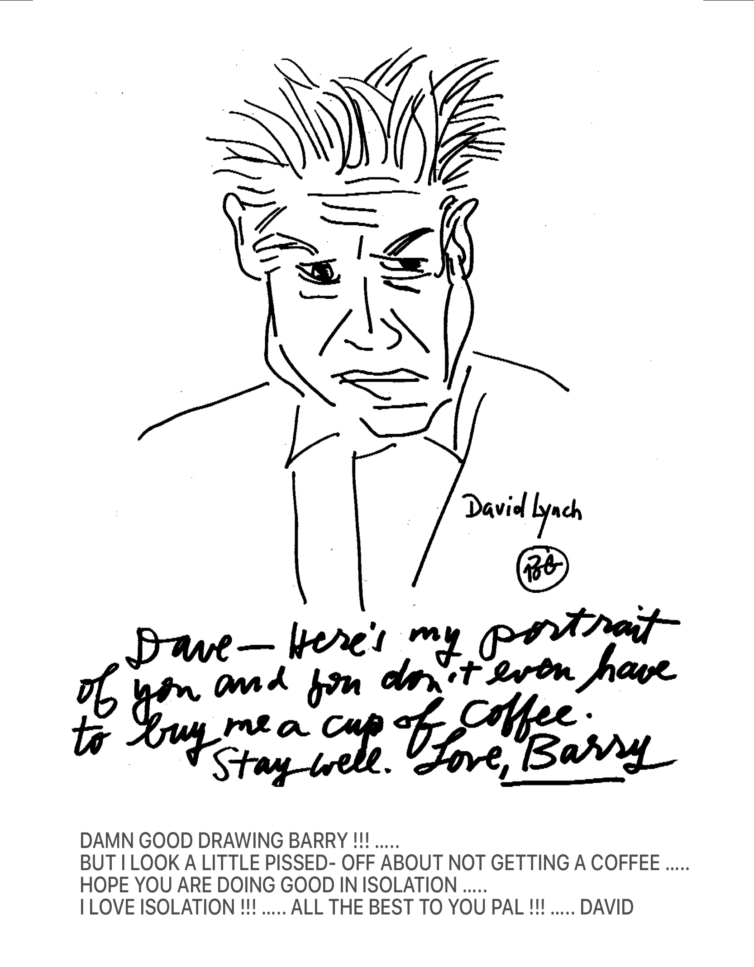 David Lynch
BG
Dave — Here's my portrait
of you and you don't even have
to buy me a cup of coffee.
Stay well. Love, Barry
DAMN GOOD DRAWING BARRY !!! .....
BUT I LOOK A LITTLE PISSED- OFF ABOUT NOT GETTING A COFFEE .....
HOPE YOU ARE DOING GOOD IN ISOLATION .....
I LOVE ISOLATION !!! ..... ALL THE BEST TO YOU PAL !!! ..... DAVID